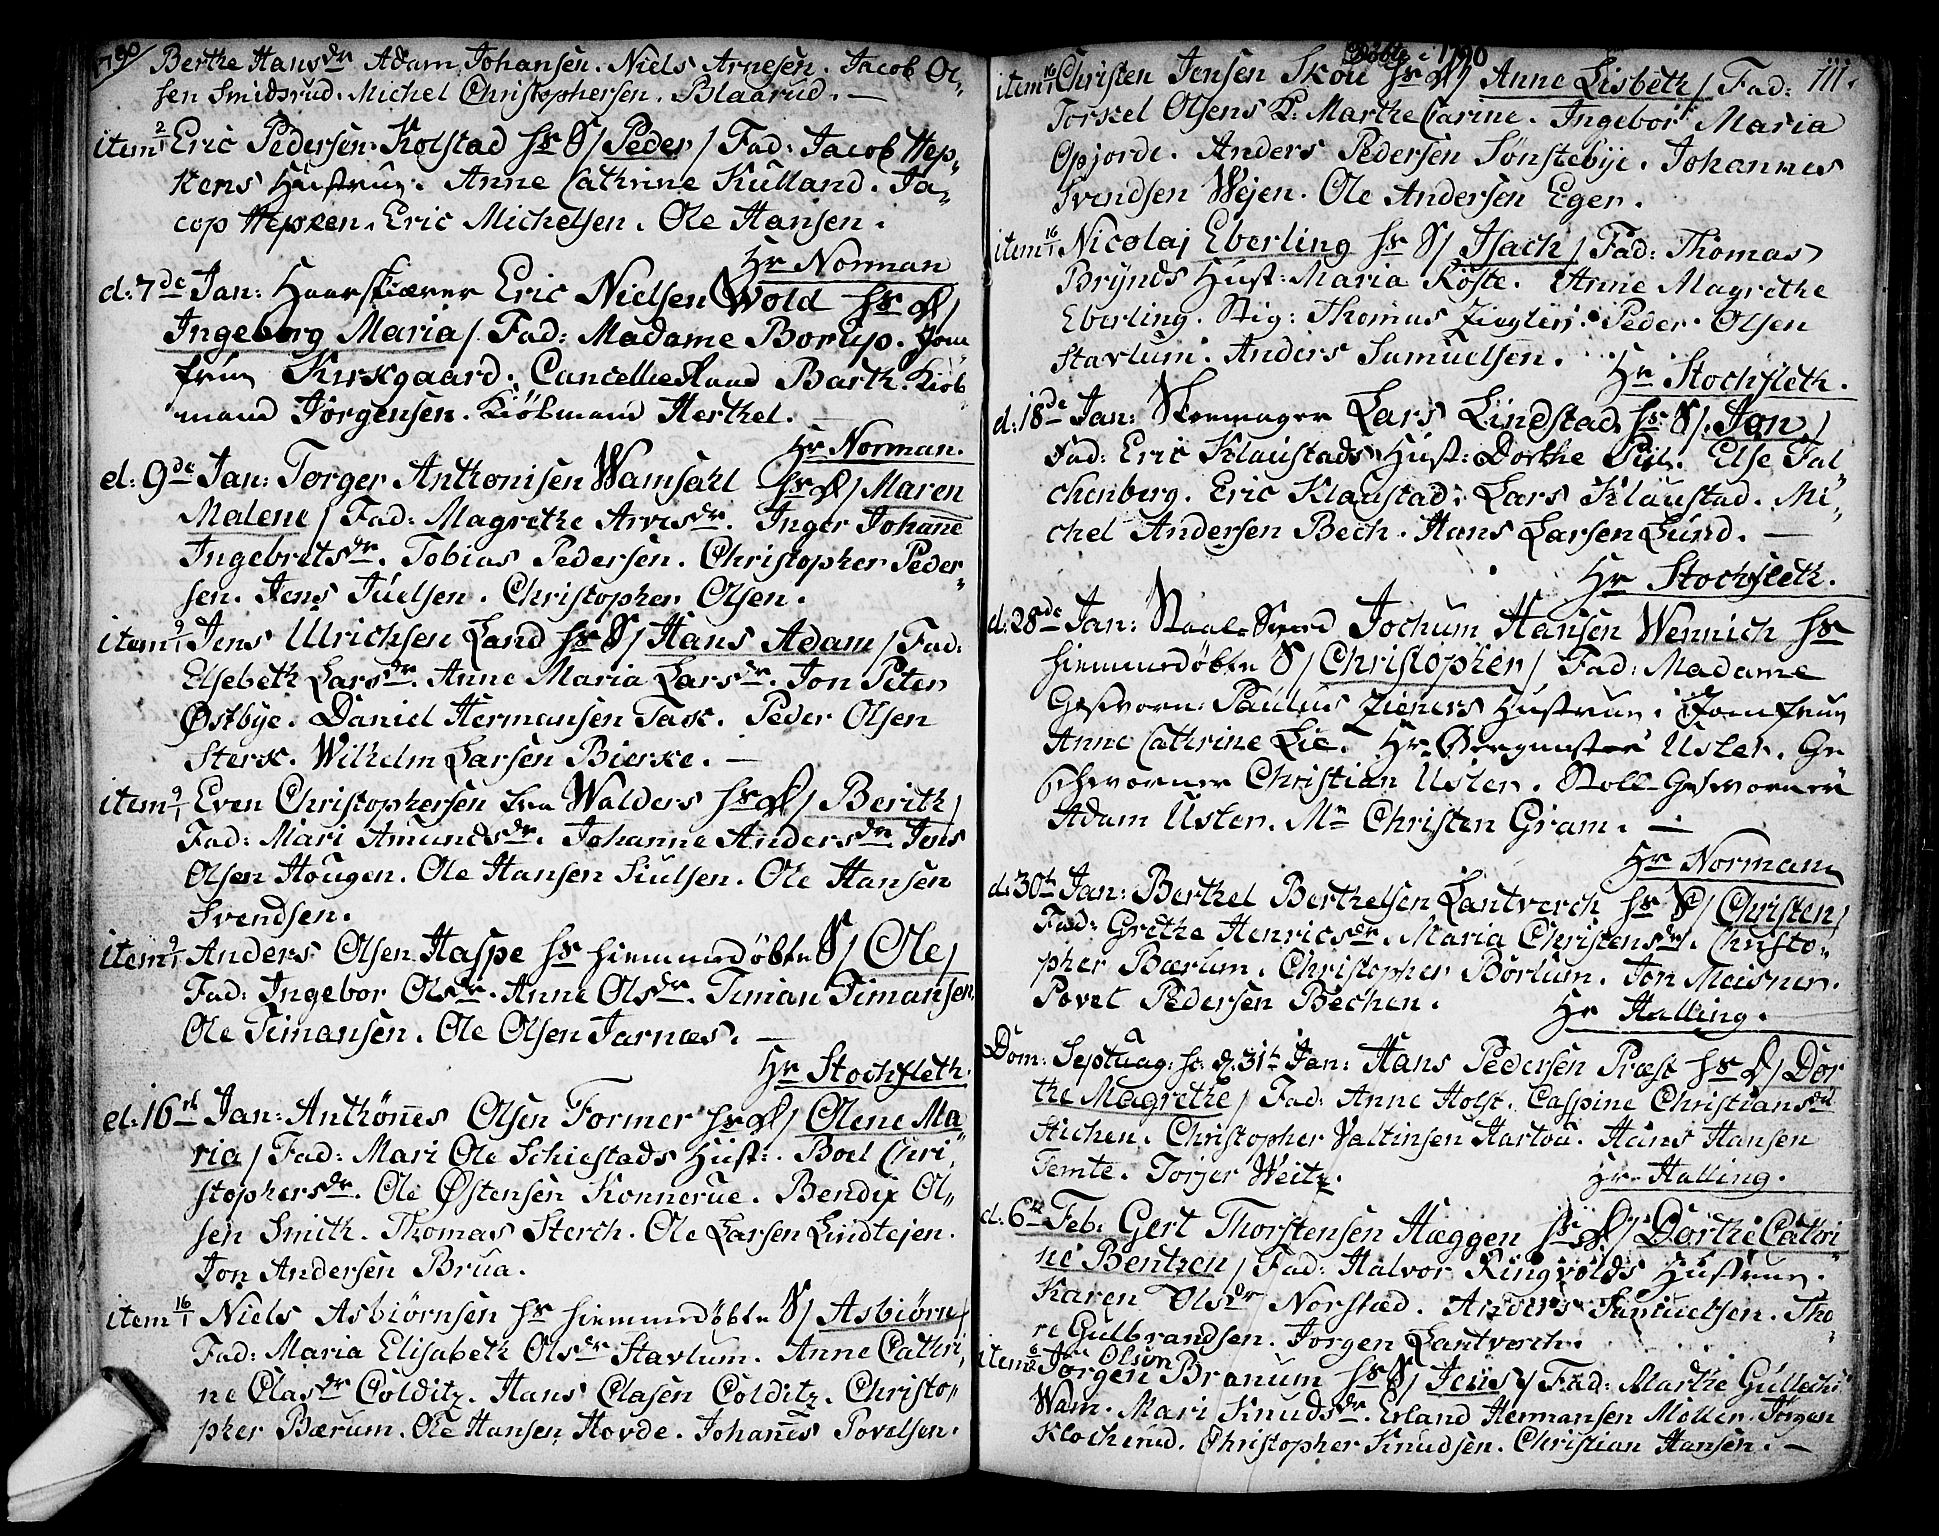 1790
Berthe Hansdr Adam Johansen. Niels Arnesen. Jacob Ol-
sen Smidsrud. Michel Christophersen. Blaarud. —
item 2/1 Eric Pedersen Kolstad hs S/ Peder / Fad: Jacob Hep-
kens Hustrue. Anne Cathrine Kulland. Ja-
cop Hepken. Eric Michelsen. Ole Hansen.
Hr Norman
d: 7de Jan: Haarskiærer Eric Nielsen Wold hs D/
Ingeborg Maria / Fad: Madame Borup. Jom
frue Kirkgaard. Cancellieraad Barth. Kiöb
mand Jörgensen. Kiöbmand Herthel.
Hr Norman.
d: 9de Jan: Torger Anthonisen Wamsahl hs D/ Maren
Malene / Fad: Magrethe Arvesdr. Inger Johanne
Ingebretsdr. Tobias Pedersen. Christopher Peder-
sen. Jens Juelsen. Christopher Olsen.
item 9/1 Jens Ulrichsen Land hs S/ Hans Adam / Fad:
Elsebeth Larsdr. Anne Maria Larsdr. Jon Peter
Østbye. Daniel Hermansen Task. Peder Olsen
Sterk. Wilhelm Larsen Bierke. —
item 9/1 Even Christophersen fra Walders hs D/ Berith /
Fad: Mari Amundsdr. Johanne Andersdr Jens
Olsen Hougen. Ole Hansen Siulsen. Ole Hansen
Svendsen.
item 9/1 Anders Olsen Haspe hs hiemmedøbte S/ Ole /
Fad: Ingebor Olsdr. Anne Olsdr. Timan Timansen
Ole Timansen. Ole Olsen Jarnæs. —
Hr Stochfleth.
d: 16th Jan: Anthönnes Olsen Former hs D/ Olene Ma
ria / Fad: Mari Ole Schiestads Hust: Boel Chri
stophersdr. Ole Østensen Konnerue. Bendix Ol-
sen Smith. Thomas Sterch. Ole Larsen Lindtejen.
Jon Andersen Brua.
item 16/1 Niels Asbiörnsen hs hiemmedøbte S/ Asbiörn /
Fad: Maria Elisabeth Olsdr Stavlum. Anne Cathri-
ne Clasdr Colditz. Hans Clasen Colditz. Christo-
pher Bærum. Ole Hansen Hovde. Johannes Povelsen.
Døbte i 1790
111.
item 16/1 Christen Jensen Skou hs D/ Anne Lisbeth / Fad:
Torkel Olsens K: Marthe Carine. Ingebor Maria
Opjorde. Anders Pedersen Sönstebye. Johannes
Svendsen Wejen. Ole Andersen Eger.
item 16/1 Nicolaj Eberling hs S/ Isach / Fad: Thomas
Brynds Hust: Maria Köste. Anne Magrethe
Eberling. Stig: Thomas Ziegler. Peder Olsen
Stavlum. Anders Samuelsen.
Hr Stochfleth.
d: 18de Jan: Skomager Lars Lindstad hs S/ Jon /
Fad: Eric Klaustads Hust: Dorthe Piil. Else Fal
chenberg. Eric Klaustad. Lars Klaustad. Mi-
chel Andersen Bech. Hans Larsen Lund. —
Hr Stochfleth.
d: 28de Jan: Staal-Smed Jochum Hansen Wennich hs
hiemmedøbte S/ Christopher / Fad: Madame
Geschworn: Paulus Zieners Hustrue. Jomfrue
Anne Cathrine Lie. Hr Bergmester Usler. Ge
schworner Christian Usler. Stoll-Geschworner
Adam Usler. Mr Christen Gram. —
Hr Norman
d: 30th Jan: Berthel Berthelsen Lantverch hs S/ Christen /
Fad: Grethe Henricsdr. Maria Christensdr. Christo-
pher Bærum. Christopher Börlum. Jon Meisner.
Povel Pedersen Bechen.
Hr Halling.
Dom: Septuag: sc: d. 31th Jan: Hans Pedersen Præst hs D/ Dor
the Magrethe / Fad: Anne Holst. Caspine Christiansdr
Stichen. Christopher Valtinsen Hartou. Hans Hansen
Temte. Torjer Weitz.
Hr Halling.
d: 6te Feb: Gert Thorstensen Hæggen hs D/ Dorthe Cathri-
ne Bentzen / Fad: Halvor Ringvolds Hustrue.
Karen Olsdr Norstad. Anders Samuelsen. Tho-
re Gulbrandsen. Jörgen Lantverch.
item 6/2 Jörgen Olsen Branum hs S/ Jens / Fad: Marthe Gullechs
Wam. Mari Knudsdr. Erland Hermansen Möller. Jörgen
Klocherud. Christopher Knudsen. Christian Hansen. —